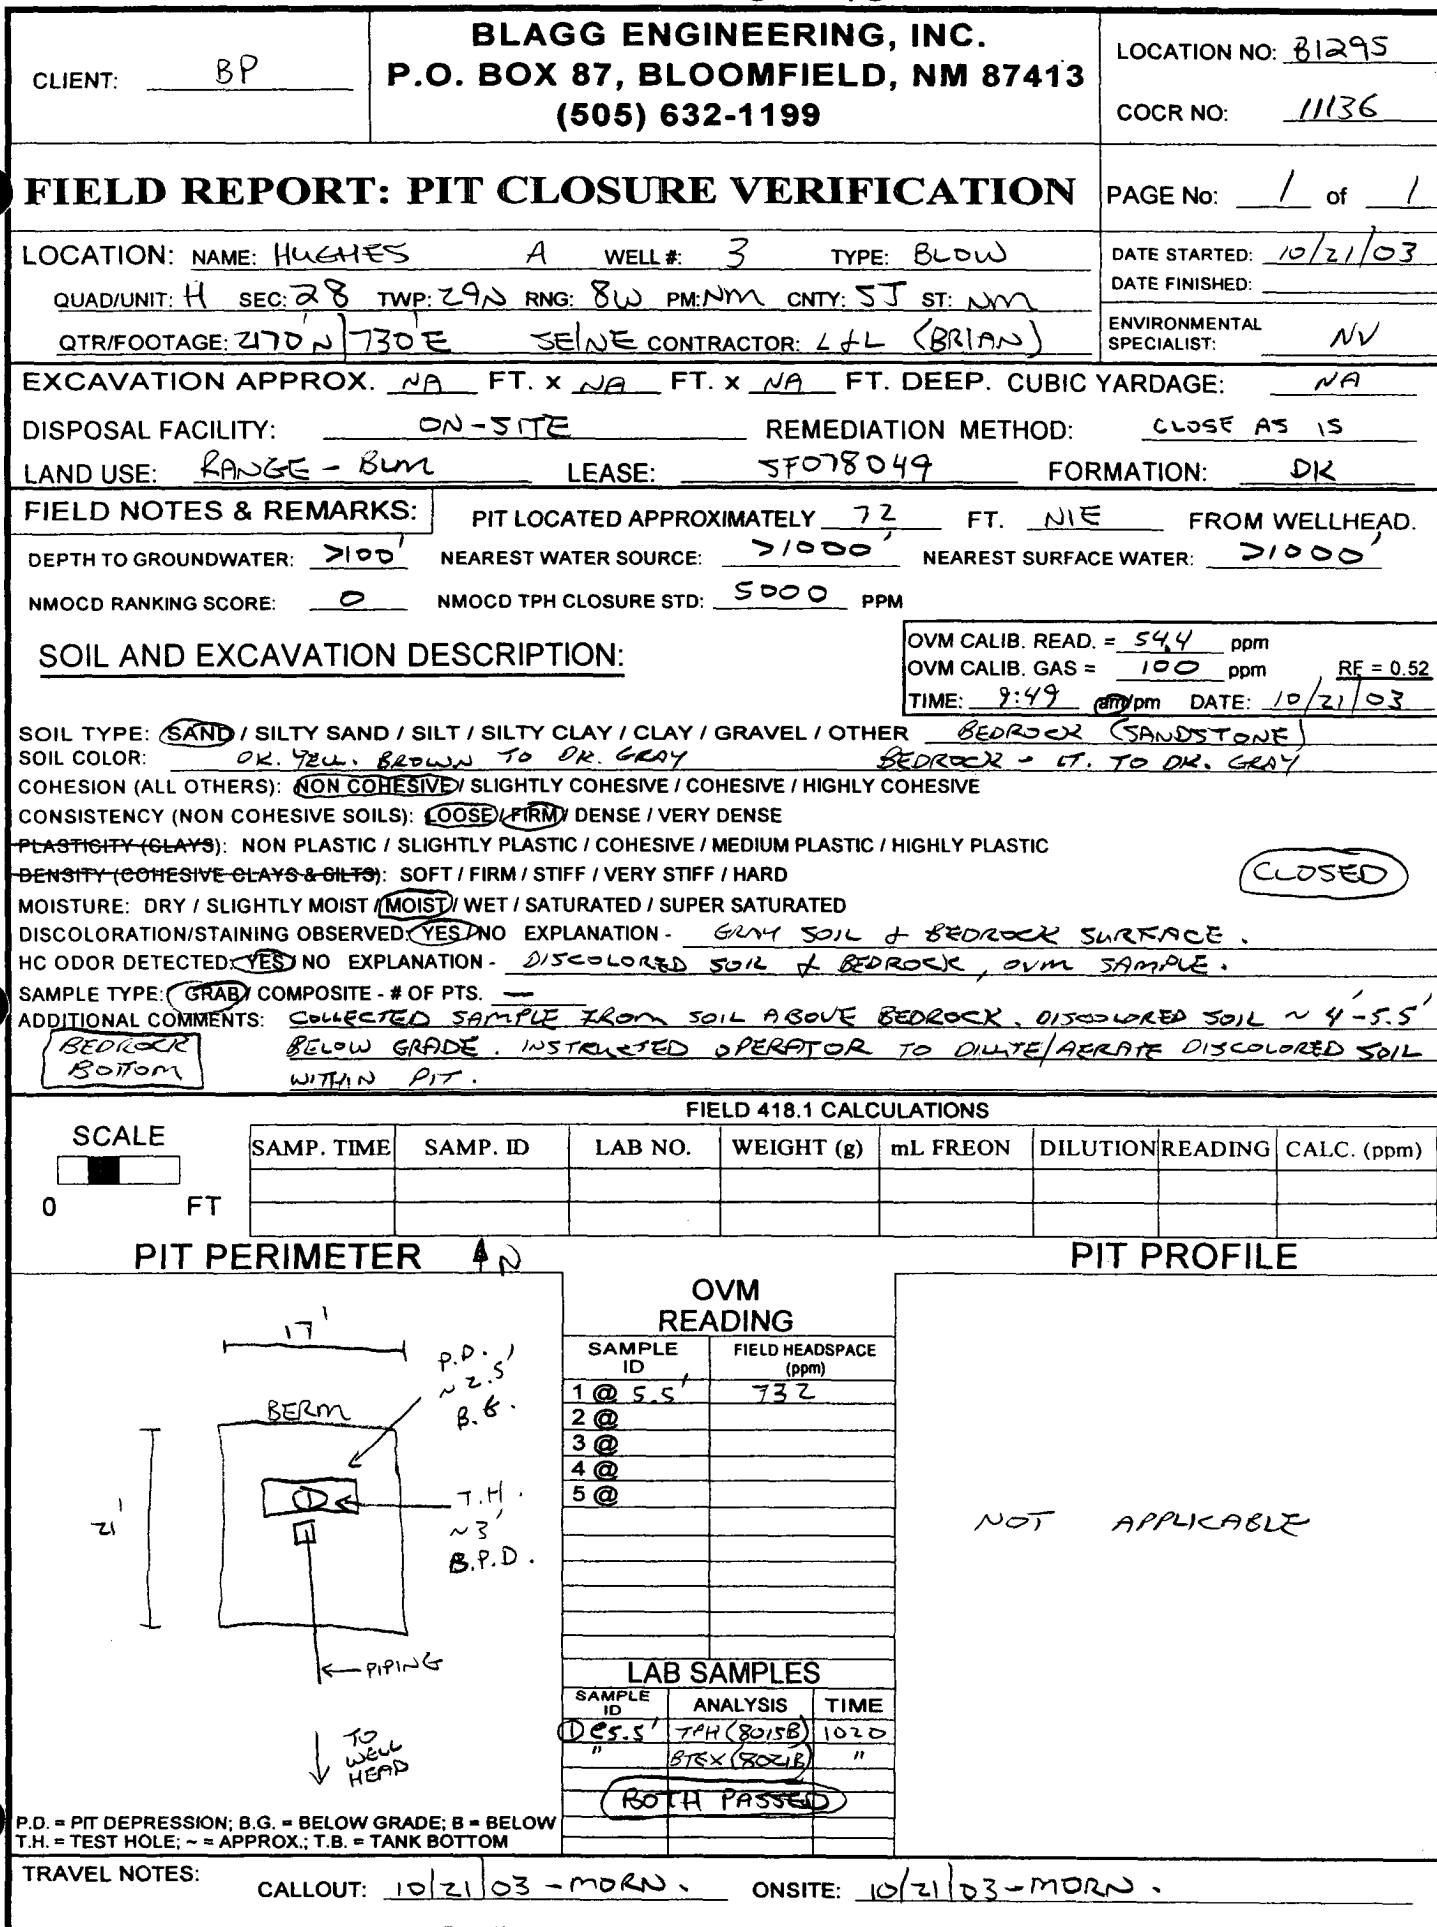 CLIENT: BP
BLAGG ENGINEERING, INC.
P.O. BOX 87, BLOOMFIELD, NM 87413
(505) 632-1199
LOCATION NO: B1295
COCR NO: 11136
FIELD REPORT: PIT CLOSURE VERIFICATION
PAGE No: 1 of 1
LOCATION: NAME: HUGHES A WELL #: 3 TYPE: BLOW
QUAD/UNIT: H SEC: 28 TWP: 29N RNG: 8W PM: NM CNTY: SJ ST: NM
QTR/FOOTAGE: 2170'N/730'E SE/NE CONTRACTOR: L&L (BRIAN)
DATE STARTED: 10/21/03
DATE FINISHED:
ENVIRONMENTAL SPECIALIST: NV
EXCAVATION APPROX. NA FT. x NA FT. x NA FT. DEEP. CUBIC YARDAGE: NA
DISPOSAL FACILITY: ON-SITE REMEDIATION METHOD: CLOSE AS IS
LAND USE: RANGE - BLM LEASE: SF078049 FORMATION: DK
FIELD NOTES & REMARKS: PIT LOCATED APPROXIMATELY 72 FT. N/E FROM WELLHEAD.
DEPTH TO GROUNDWATER: >100' NEAREST WATER SOURCE: >1000' NEAREST SURFACE WATER: >1000'
NMOCD RANKING SCORE: 0 NMOCD TPH CLOSURE STD: 5000 PPM
SOIL AND EXCAVATION DESCRIPTION:
OVM CALIB. READ. = 54.4 ppm
OVM CALIB. GAS = 100 ppm RF = 0.52
TIME: 9:49 am/pm DATE: 10/21/03
SOIL TYPE: SAND / SILTY SAND / SILT / SILTY CLAY / CLAY / GRAVEL / OTHER BEDROCK (SANDSTONE)
SOIL COLOR: DK. YELL. BROWN TO DK. GRAY BEDROCK - LT. TO DK. GRAY
COHESION (ALL OTHERS): NON COHESIVE / SLIGHTLY COHESIVE / COHESIVE / HIGHLY COHESIVE
CONSISTENCY (NON COHESIVE SOILS): LOOSE / FIRM / DENSE / VERY DENSE
PLASTICITY (CLAYS): NON PLASTIC / SLIGHTLY PLASTIC / COHESIVE / MEDIUM PLASTIC / HIGHLY PLASTIC
DENSITY (COHESIVE CLAYS & SILTS): SOFT / FIRM / STIFF / VERY STIFF / HARD
CLOSED
MOISTURE: DRY / SLIGHTLY MOIST / MOIST / WET / SATURATED / SUPER SATURATED
DISCOLORATION/STAINING OBSERVED: YES / NO EXPLANATION - GRAY SOIL & BEDROCK SURFACE.
HC ODOR DETECTED: YES / NO EXPLANATION - DISCOLORED SOIL & BEDROCK, OVM SAMPLE.
SAMPLE TYPE: GRAB / COMPOSITE - # OF PTS. —
ADDITIONAL COMMENTS: COLLECTED SAMPLE FROM SOIL ABOVE BEDROCK. DISCOLORED SOIL ~ 4'-5.5'
BELOW GRADE. INSTRUCTED OPERATOR TO DILUTE/AERATE DISCOLORED SOIL
WITHIN PIT.
BEDROCK
BOTTOM
FIELD 418.1 CALCULATIONS
SCALE
0 FT
SAMP. TIME SAMP. ID LAB NO. WEIGHT (g) mL FREON DILUTION READING CALC. (ppm)
PIT PERIMETER N
PIT PROFILE
17'
P.D.
~ 2.5'
B.G.
BERM
21'
1
T.H.
~3'
B.P.D.
PIPING
TO
WELL
HEAD
OVM
READING
SAMPLE ID FIELD HEADSPACE (ppm)
1 @ 5.5' 732
2 @
3 @
4 @
5 @
NOT APPLICABLE
LAB SAMPLES
SAMPLE ID ANALYSIS TIME
1 @ 5.5' TPH (8015B) 1020
" BTEX (8021B) "
BOTH PASSED
P.D. = PIT DEPRESSION; B.G. = BELOW GRADE; B = BELOW
T.H. = TEST HOLE; ~ = APPROX.; T.B. = TANK BOTTOM
TRAVEL NOTES: CALLOUT: 10/21/03 - MORN. ONSITE: 10/21/03 - MORN.